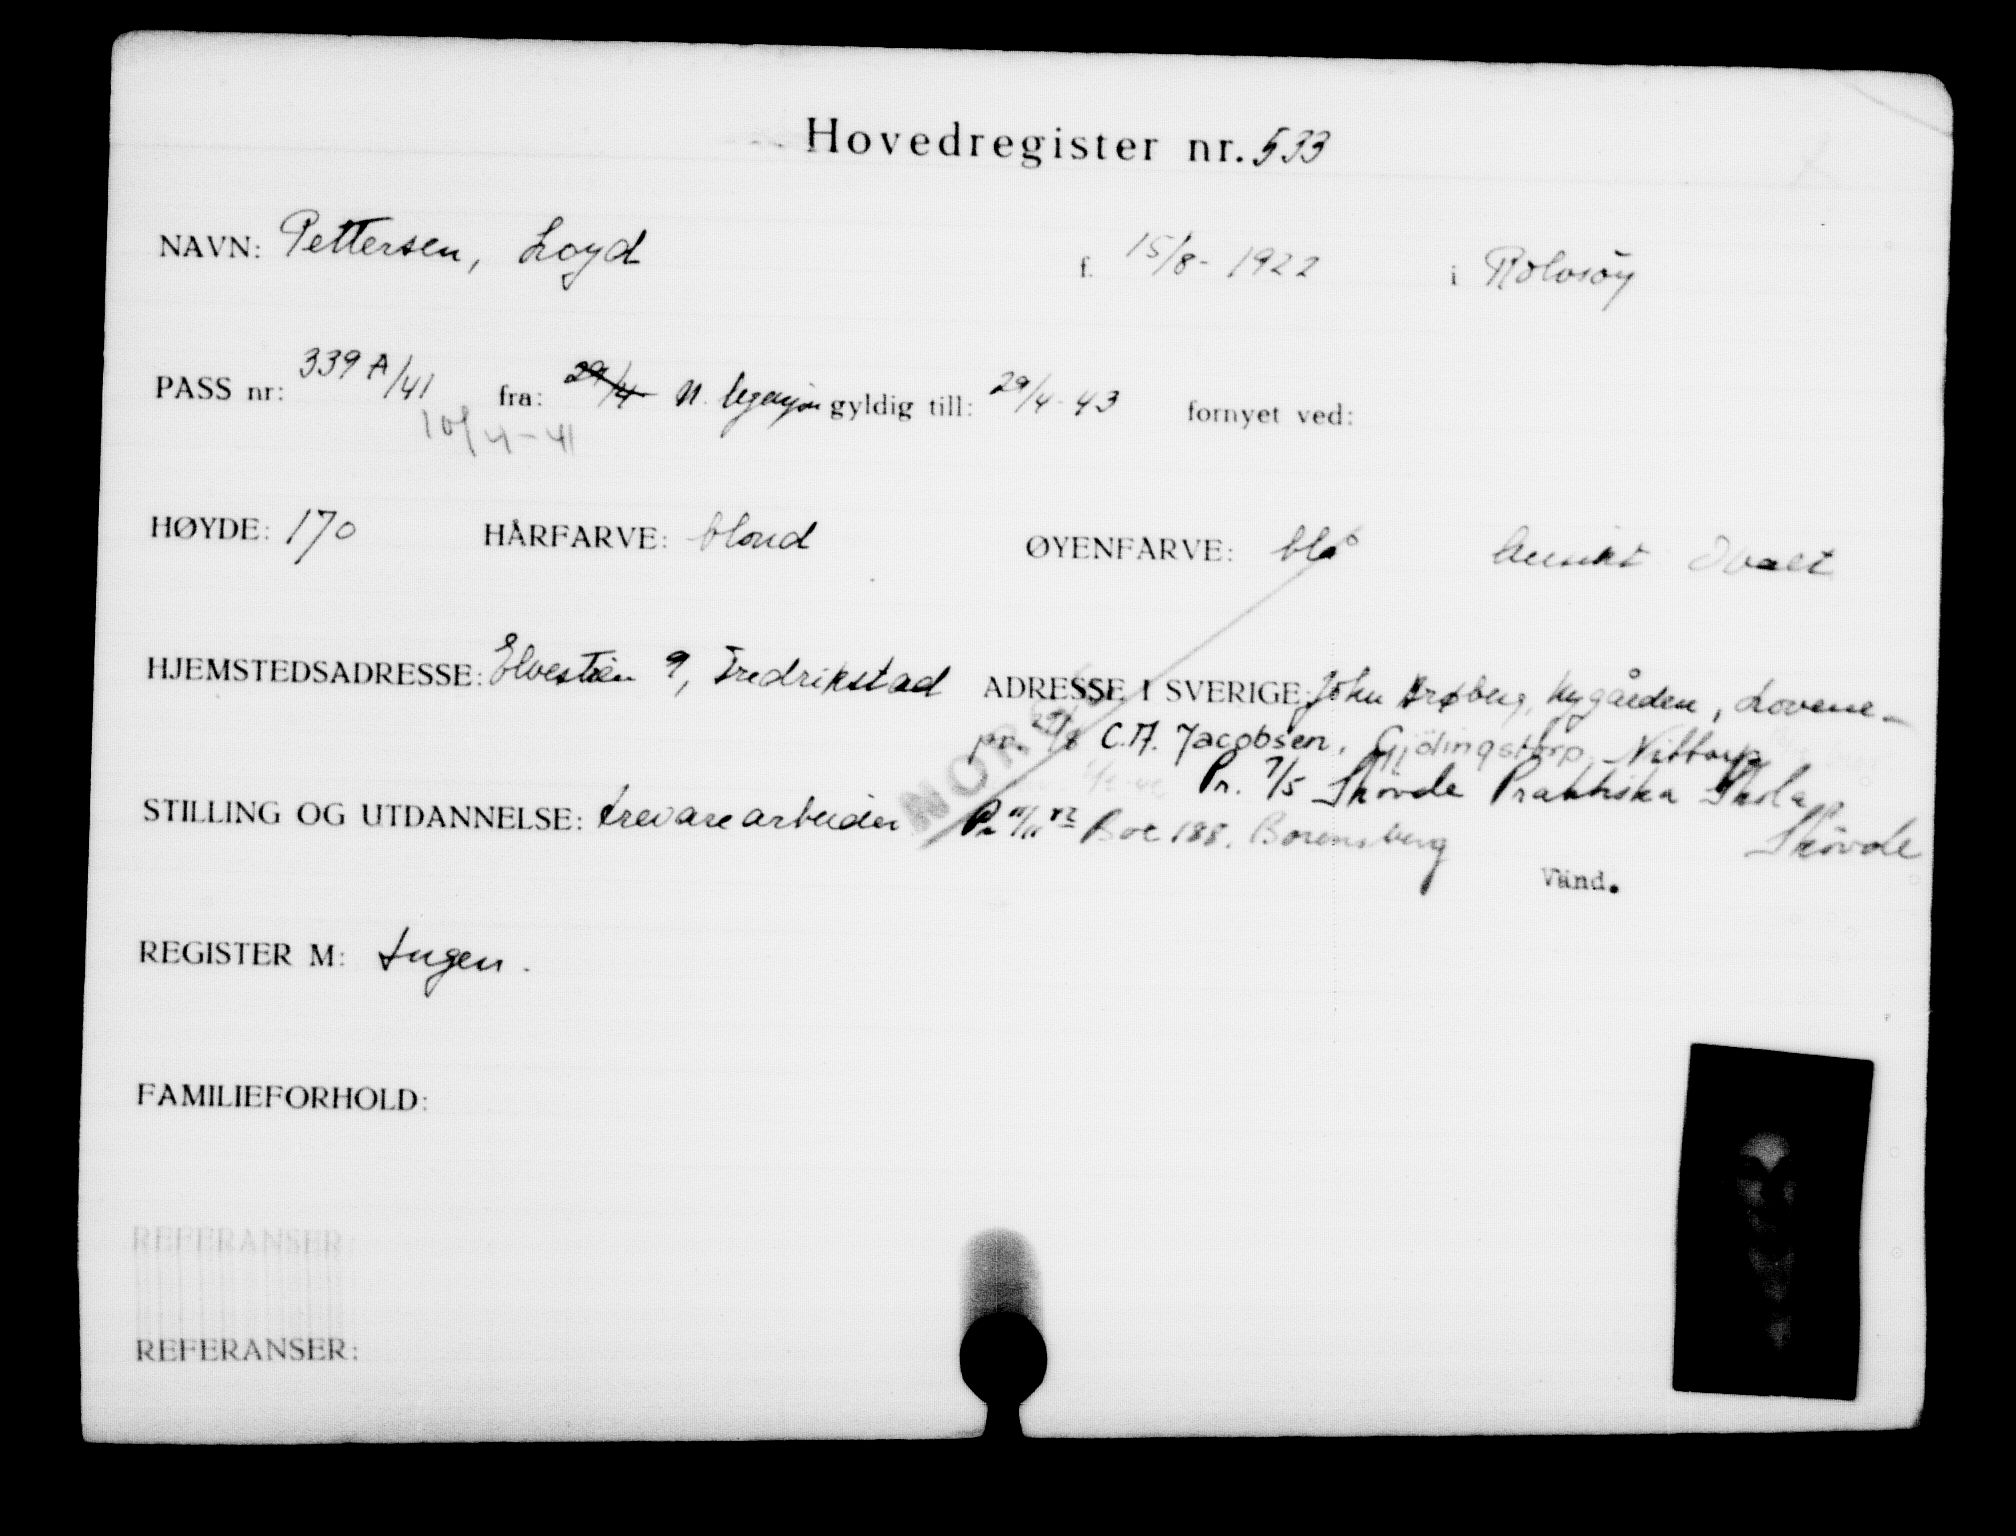 Hovedregister nr. 533
NAVN: Pettersen, Loyd f. 15/8- 1922 i Rolvsöy
PASS nr: 339 A/41 fra: 29/4 N. legasjon gyldig till: 29/4-43 fornyet ved:
10/4-41
HØYDE: 170 HÅRFARVE: blond ØYENFARVE: blå Ansikt Ovalt
HJEMSTEDSADRESSE: Elvestien 9, Fredrikstad ADRESSE I SVERIGE: John Brøberg, Nygården, Lovene-
pr. 29/8 C.A. Jacobsen, Gjölingstorp, Nittorp
NORGE
Pr. 7/5 Skövde Praktiska Skola,
STILLING OG UTDANNELSE: trevarearbeider Pr 11/11 42 Box 188, Borensberg Skövde
Vänd.
REGISTER M: Ingen.
FAMILIEFORHOLD:
REFERANSER:
REFERANSER: